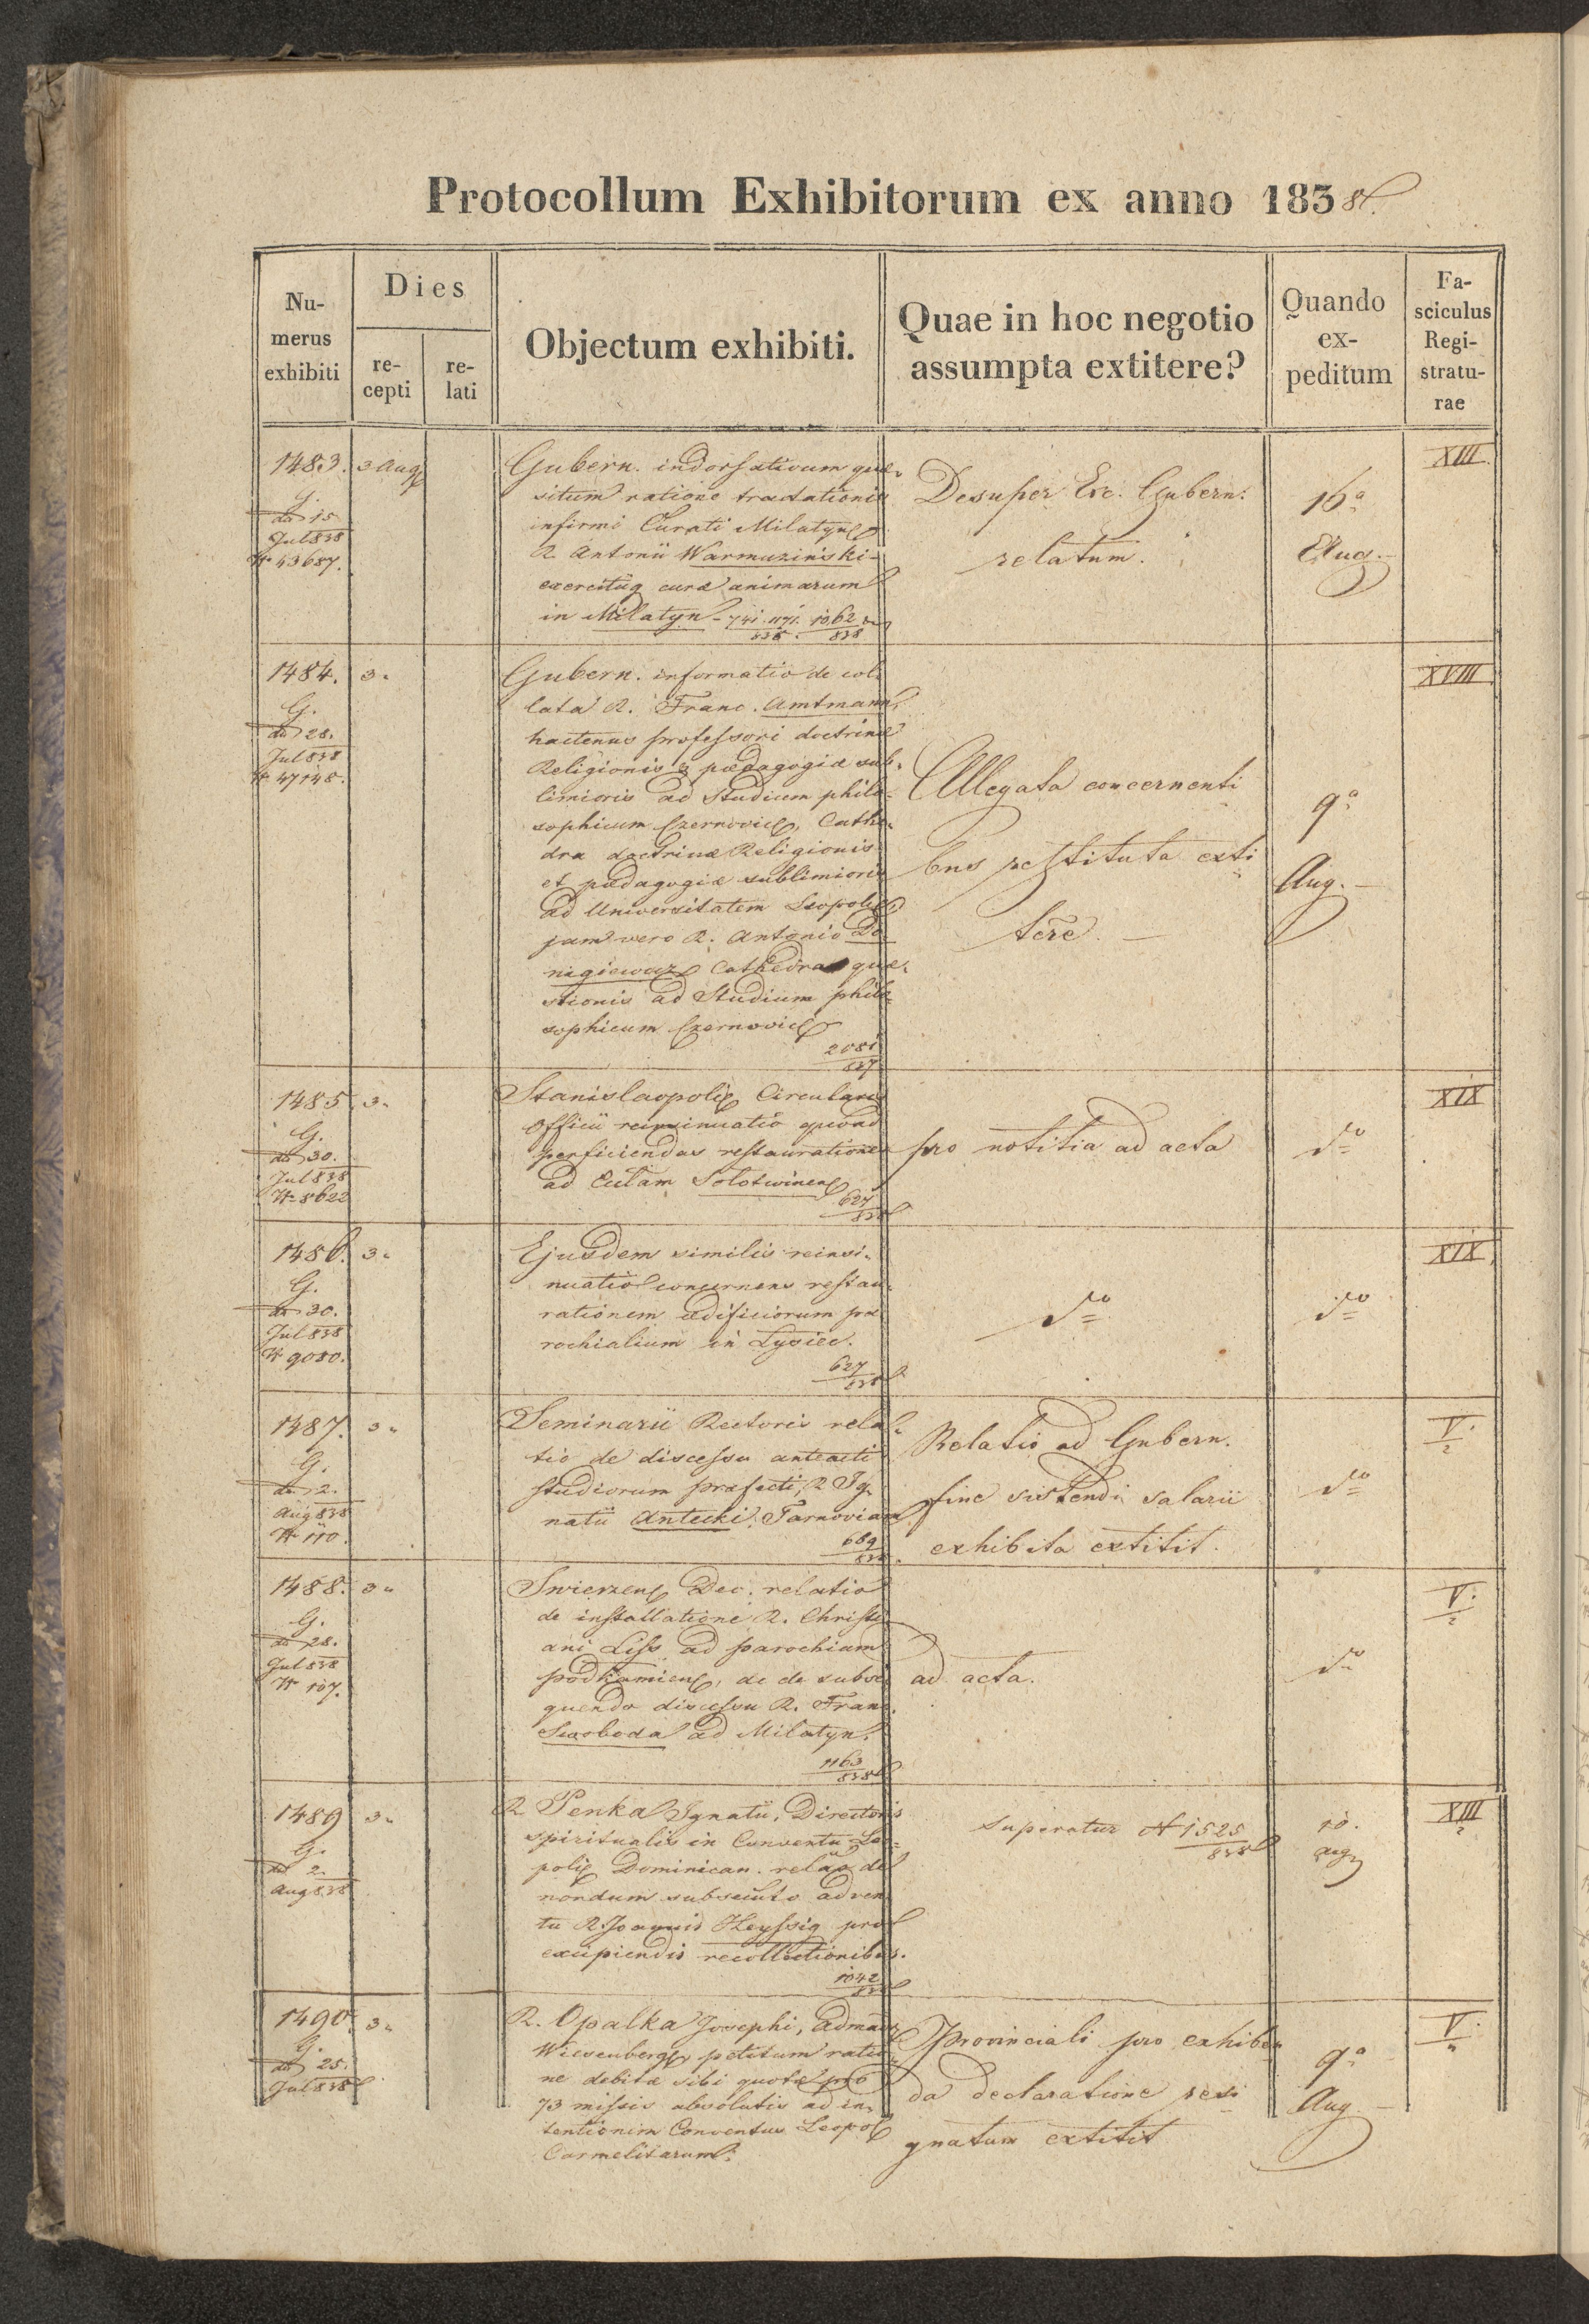 Protocollum Exhibitorum ex anno 1838.
Nu-
merus
exhibiti
Dies
re-
cepti
re-
lati
Objectum exhibiti.
Quae in hoc negotio
assumpta extitere?
Quando
ex-
peditum
Fa-
sciculus
Regi-
stratu-
rae
1483. 3 Aug
G.
dd 15
Jul 838
N 43687.
Gubern. indorsativum quæ-
situm ratione tractationis
infirmi Curati Milatyn
R. Antonii Warmuzinski
curæ animarum
in Milatyn 741. 1171. 1062
838. 838
Desuper Exc. Gubern.
relatum.
16a
Aug.
XIII.
1484. 3.
G.
dd 28.
Jul 838
N 47148.
Gubern. informatio de col-
lata R. Franc. Amtmann,
hactenus professori doctrinæ
Religionis & pædagogiæ sub-
limioris ad Studium philo-
sophicum Czernovic, Cathe-
dra doctrinæ Religionis
et pædagogiæ sublimioris
ad Universitatem Leopol
jam vero R. Antonio Do-
nigiewicz Cathedra quæ-
stionis ad Studium philo-
sophicum Czernovic
2081
837
Allegata concernenti
bus restituta exti
tere.
9a
Aug.
XVIII
1485. 3.
G.
dd 30.
Jul 838
N 8622
Stanislaopol Circularis
Officii reinsinuatio quoad
perficiendas restaurationes
ad Eccłam Solotwinen
627
838
pro notitia ad acta
do
XIX
1486. 3.
G.
dd 30.
Jul 838
N 9080.
Ejusdem similis reinsi-
nuatio concernens restau-
rationem ædificiorum pa-
rochialium in Lysiec.
627
838
do
do
XIX
1487. 3.
G.
dd 2.
Aug 838
N 110.
Seminarii Rectoris rela-
tio de discessu anteacti
studiorum præfecti, R. Ig-
natii Antecki Tarnoviam
689
838
Relatio ad Gubern.
fine sistendi salarii
exhibita extitit.
do
V.
2
1488. 3.
G.
dd 28.
Jul 838
N 107.
Swierzen Dec. relatio
de installatione R. Christi-
ani Liss ad parochiam
podkamien, ac de subse-
quendo discessu R. Franc.
Swoboda ad Milatyn.
1163
838
ad acta.
do
V.
2
1489 3.
G.
dd 2.
Aug 838
R Penka Ignatii, Directoris
spiritualis in Conventu Leo-
pol Dominican. relao de
nondum subsecuto adven-
tu R. Joannis Heyssig pro
excipiendis recollectionibus.
1042
838
superatur N 1525
838
10.
aug
XIII
2
1490. 3.
G.
dd 25.
Jul 838
R. Opalka Josephi, Admris
Wiesenberg petitum ratio-
ne debitæ sibi quotæ pro
73 missis absolutis ad in-
tentionem Conventus Leopol
Carmelitarum.
Provinciali pro exhiben
da declaratione resi
gnatum extitit
9a
Aug.
V.